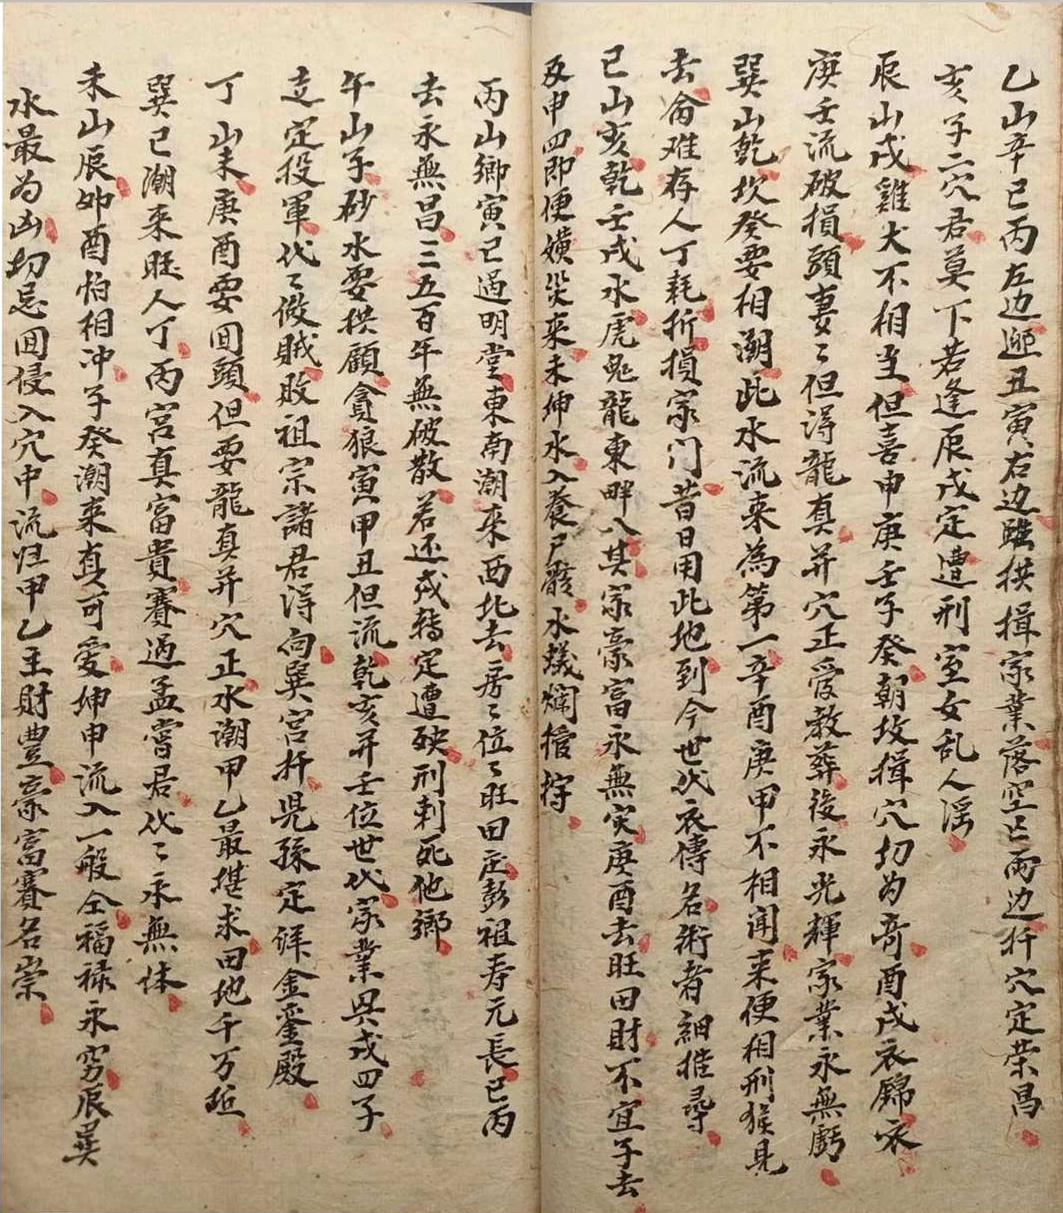 乙山辛巳丙左边迎丑寅右边雖拱揖家業落空亡两边扦穴定荣昌
亥子二穴君莫下若逢辰戌定遭刑室女乱人滛
辰山戌雞犬不相生但喜申庚壬子癸朝坟揖穴切为奇酉戌衣錦
庚壬流破損頭妻〻但得龍真并穴正爱教葬後永光輝家業永無虧
巽山乾坎癸要相潮此水流来為第一辛酉庚甲不相闻来便相刑
去难存人丁耗折損家门昔日用此地到今世代衣傳名術者細推尋
巳山亥乾壬戌水虎鬼龍東畔八其家豪富永無灾庚酉去旺田財不宜子去
及申四即便灾来未坤水入養尸骸水蟻爛棺
丙山鄉寅巳過明堂東南潮来西北去房〻位〻旺田庄彭祖寿元長巳丙
去永無昌三五百年無破散若还戌轉定遭殃刑剌死他鄉
午山子砂水要拱顧貪狼寅甲丑但流乾亥并壬位世代家業異戌四子
走定投軍代〻做贼敗祖宗諸君得向巽宮扦児孫定詳金銮殿
丁山未庚酉要囬頭但要龍真并穴正水潮甲乙最堪求田地千万坵
巽巳潮来旺人丁丙宮真富貴賽過孟嘗君代〻永無休
未山辰卯酉怕相冲子癸潮来真可爱坤申流入一般全福禄永穷辰巽
水最为凶切忌囬侵入穴中流归甲乙主財豊豪富賽名崇